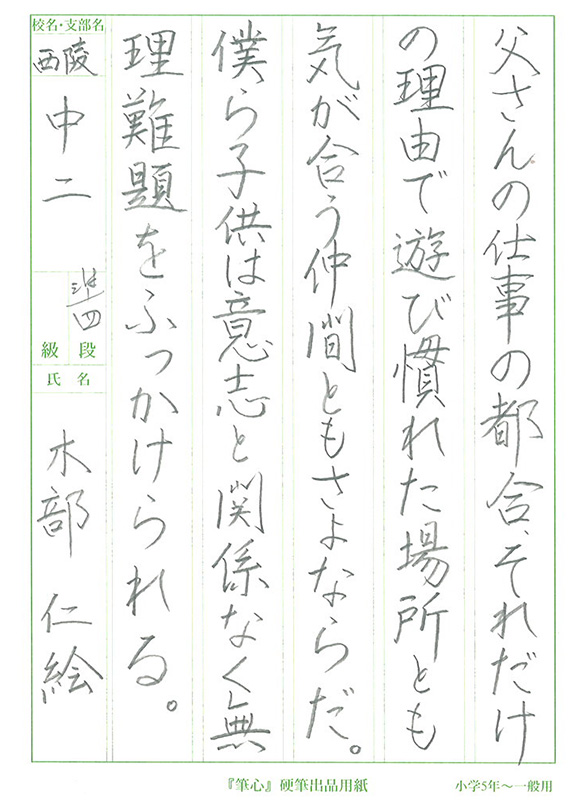 父さんの仕事の都合、それだけ
の理由で遊び慣れた場所とも
気が合う仲間ともさよならだ。
僕ら子供は意志と関係なく無
理難題をふっかけられる。
校名・支部名
西陵
中二
準四
級 段
氏 名
木部 仁絵
『筆心』硬筆出品用紙
小学5年〜一般用